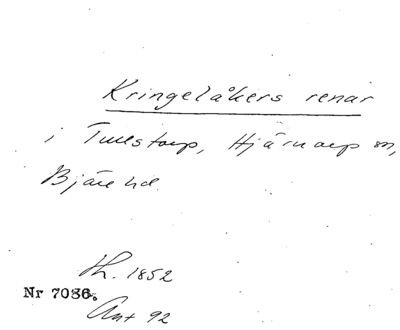 Kringelåkers renar
i Tullstorp, Hjärnarp sn,
Bjäre hd.
th. 1852
Nr 7086.
Ant 92